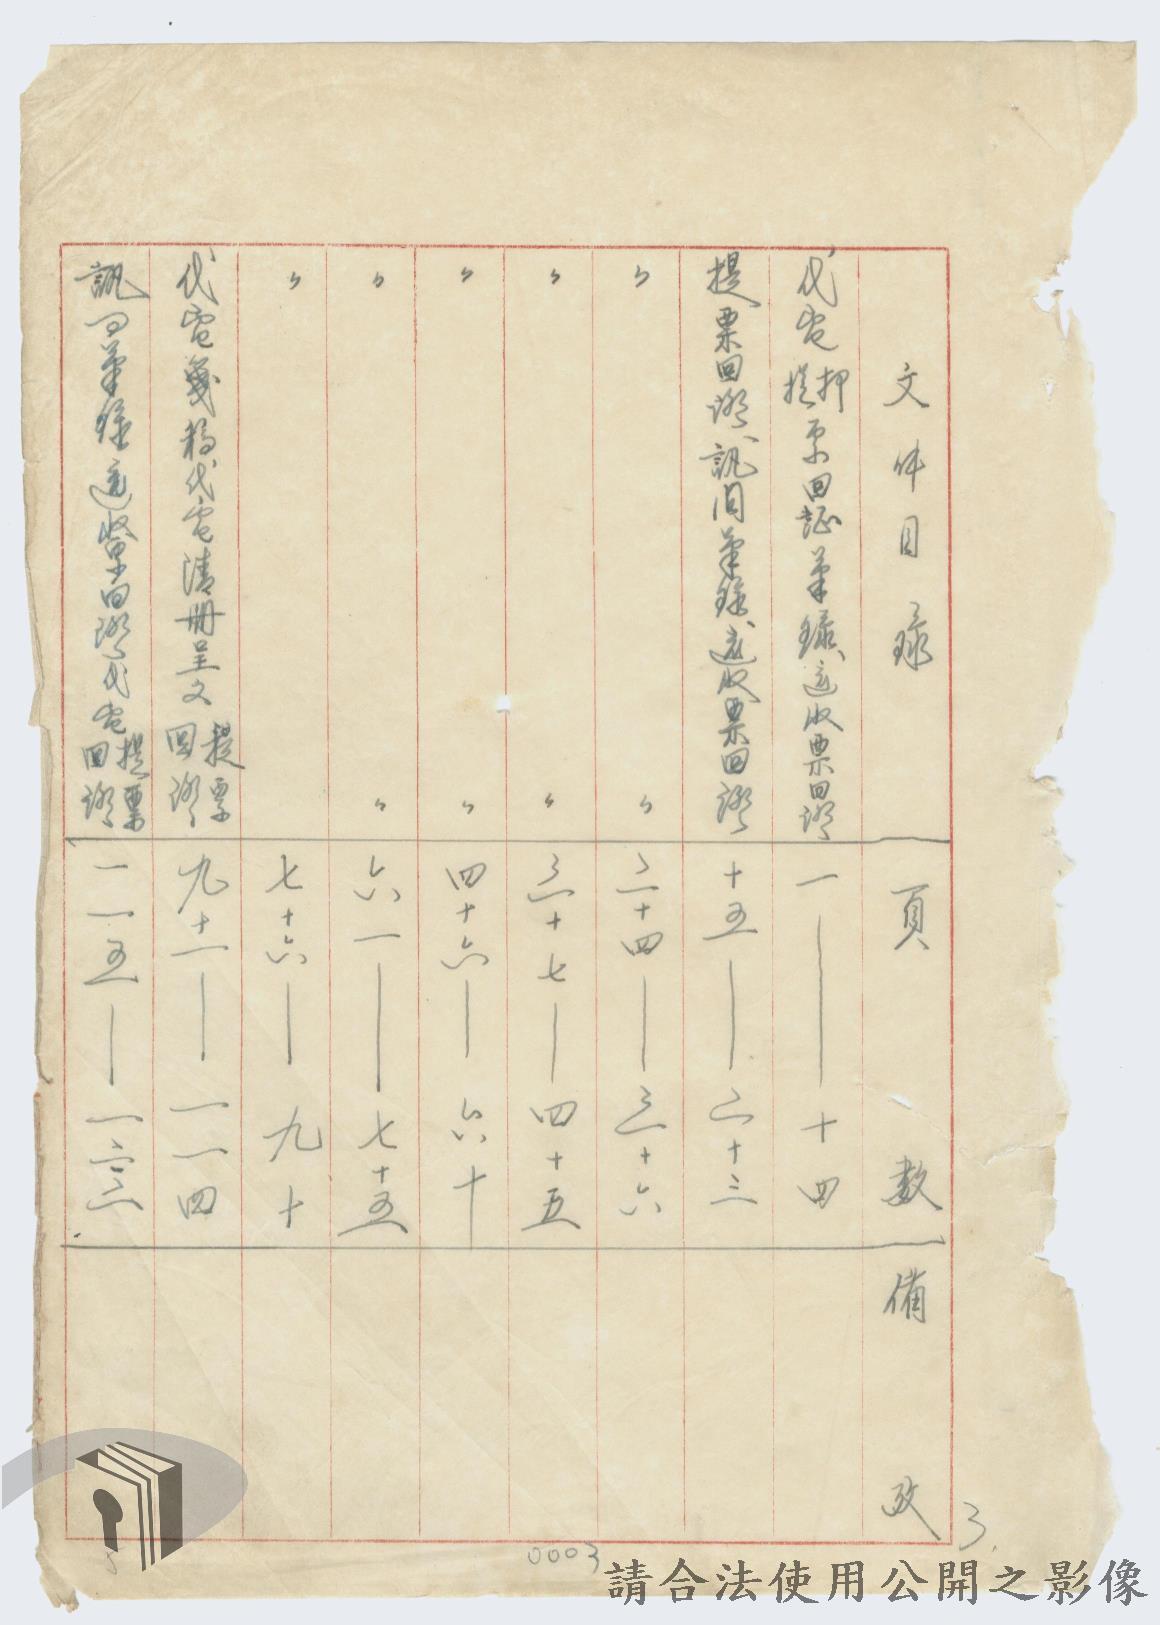 文件目錄 頁數 備攷
代電押提票回証筆錄、還收票回證 一——十四
提票回證、訊問筆錄、還收票回證 十五——二十三
〃 〃 二十四——三十六
〃 〃 三十七——四十五
〃 〃 四十六——六十
〃 〃 六一——七十五
〃 七十六——九十
代電箋稿代電清冊呈文提票回證 九十一——一一四
訊問筆錄還票回證代電提票回證 一一五——一二三
3.
0003
請合法使用公開之影像